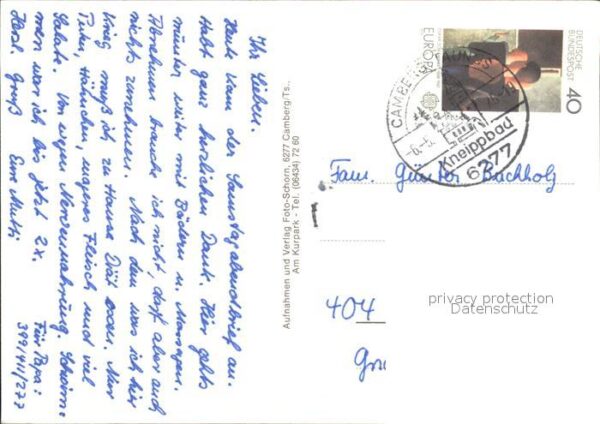 Ihr Lieben.
Heute kam der Samstagabendbrief an.
Habt ganz herzlichen Dank. Hier gehts
munter weiter mit Bädern u. Massagen.
Abnehmen brauche ich nicht, darf aber auch
nichts zunehmen. Nach dem was ich hier
krieg muß ich zu Hause Diät essen. Nur
Puter, Hähnchen, mageres Fleisch und viel
Salate. Von wegen Nervennahrung. Schwim-
men war ich bis jetzt 2x.
Herzl. Gruß Eure Mutti
Für Papa:
399/411/272
Aufnahmen und Verlag Foto-Schorn, 6277 Camberg/Ts.,
Am Kurpark - Tel. (06434) 72 60
DEUTSCHE
BUNDESPOST
40
EUROPA
CAMBERG
Kneippbad
6277
Fam. Günter Buchholz
404
privacy protection
Datenschutz